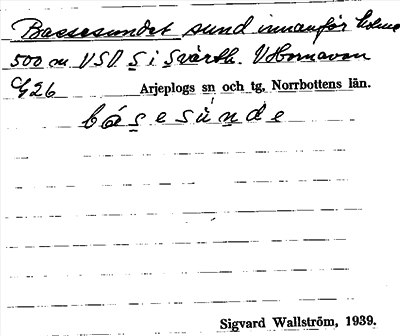 Bassesundet sund innanför holme
500 m VSV S i Svärth. V Hornavan
C/G26 Arjeplogs sn och tg, Norrbottens län.
básesùnde
Sigvard Wallström, 1939.